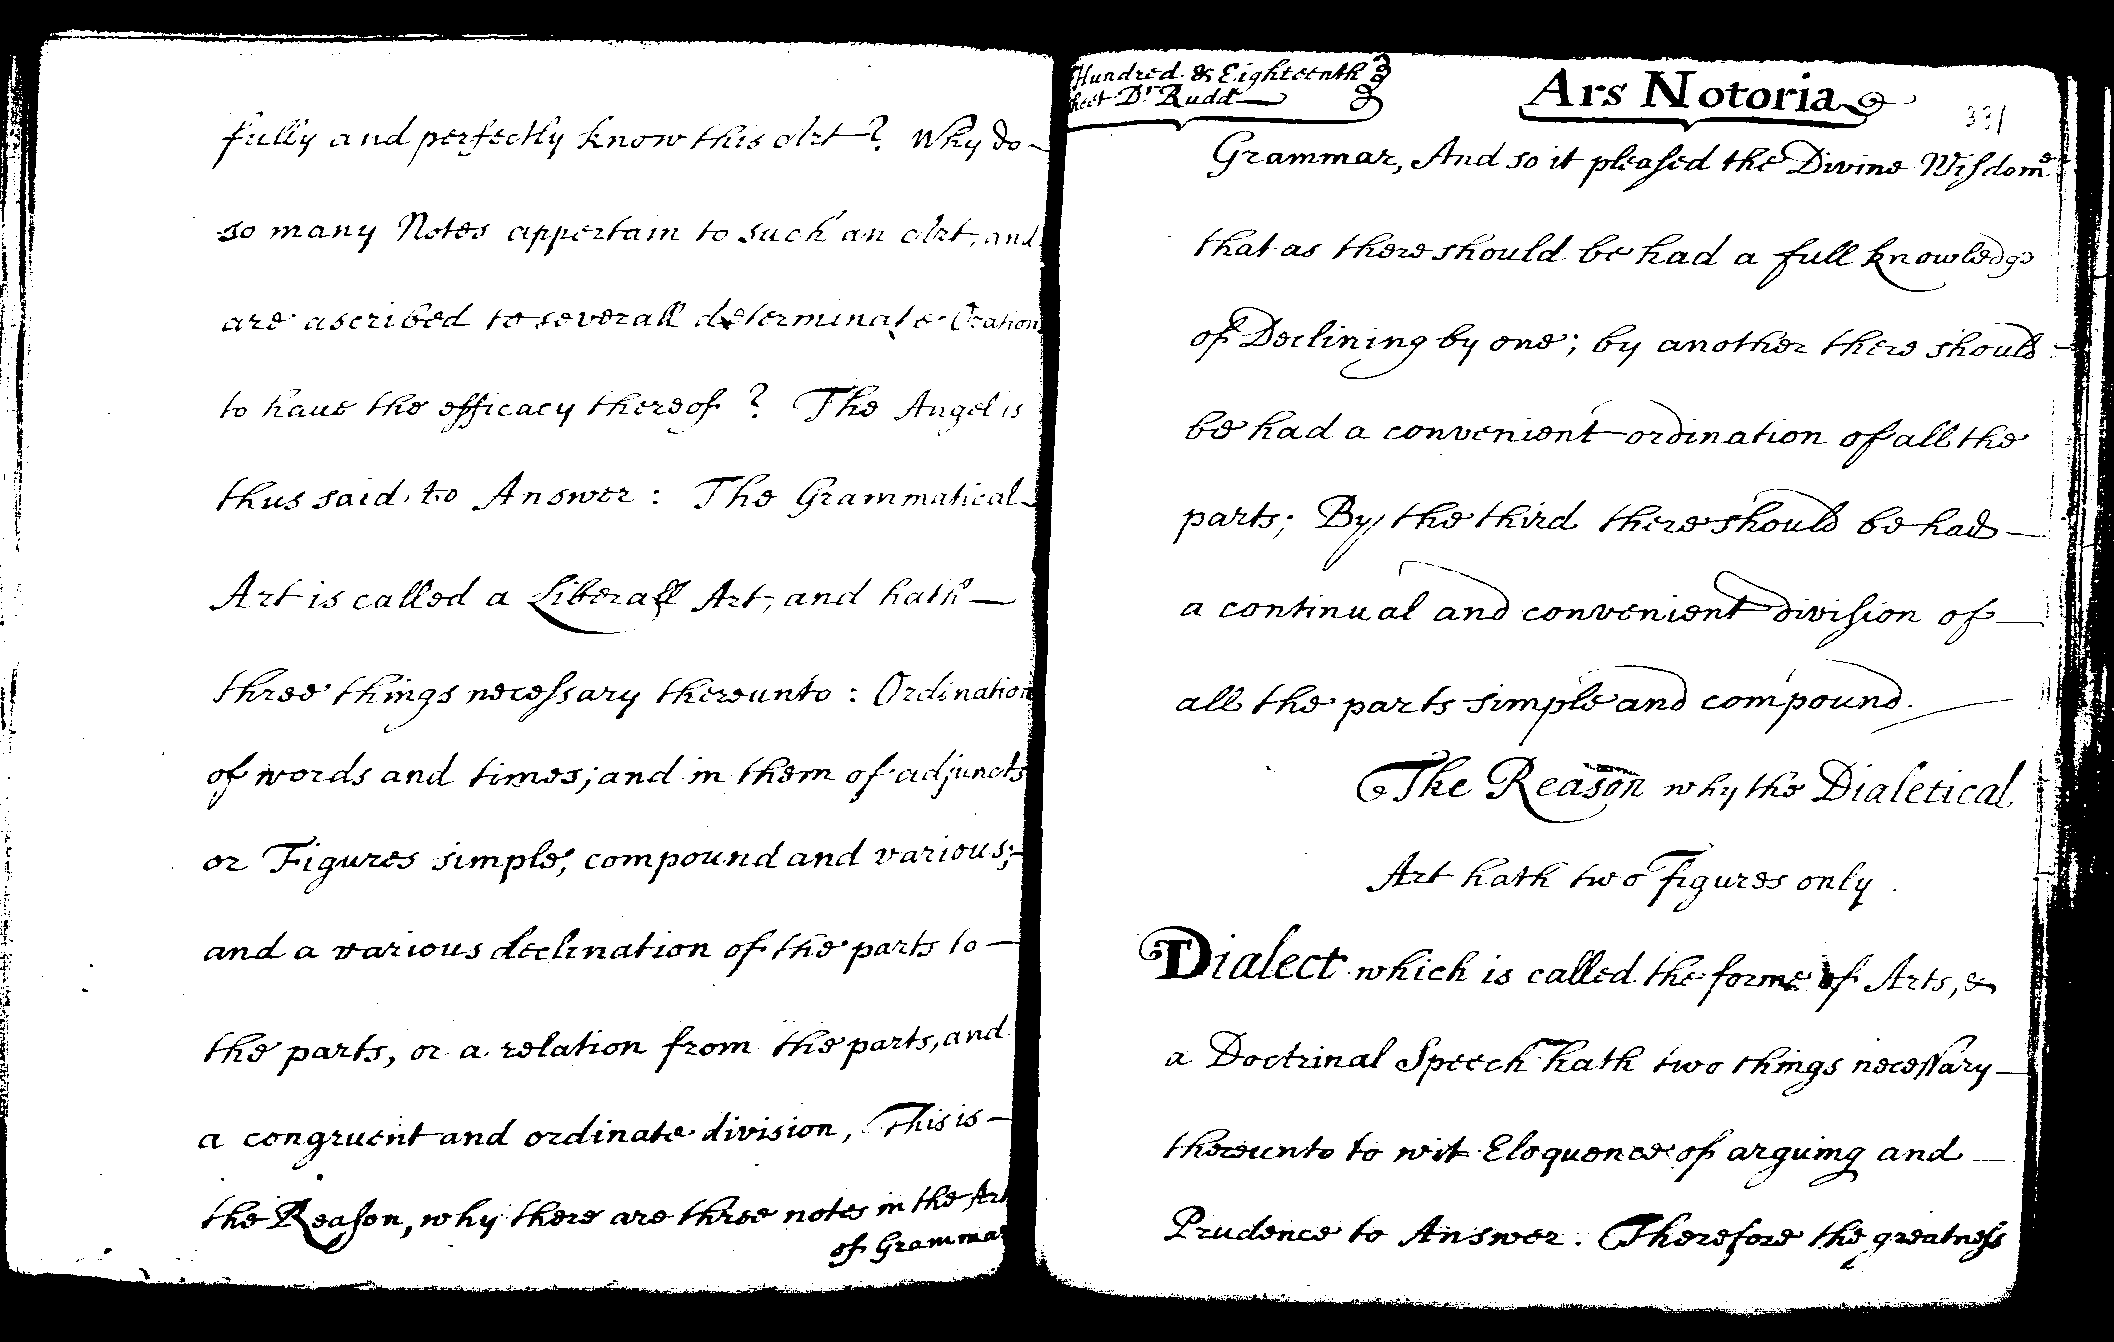 fully and perfectly know this Art? Why do
so many Notes appertain to such an Art, and
are ascribed to severall determinate Oration
to haue the efficacy thereof? The Angel is
thus said to Answer: The Grammatical
Art is called a Liberall Art, and hath
three things necessary thereunto: Ordination
of words and times; and in them of adjuncts
or Figures simple, compound and various;
and a various declination of the parts to
the parts, or a relation from the parts, and
a congruent and ordinate division, This is
the Reason, why there are three notes in the Art
of Grammar
Hundred & Eighteenth
heet Dr Rudd
Ars Notoria
331
Grammar, And so it pleased the Divine Wisdome
that as there should be had a full knowledge
of Declining by one; by another there should
be had a convenient ordination of all the
parts; By the third there should be had
a continual and convenient division of
all the parts simple and compound.
The Reason why the Dialetical
Art hath two Figures only.
Dialect which is called the forme of Arts, &
a Doctrinal Speech hath two things necessary
thereunto to wit Eloquence of arguing and
Prudence to Answer. Therefore the greatness